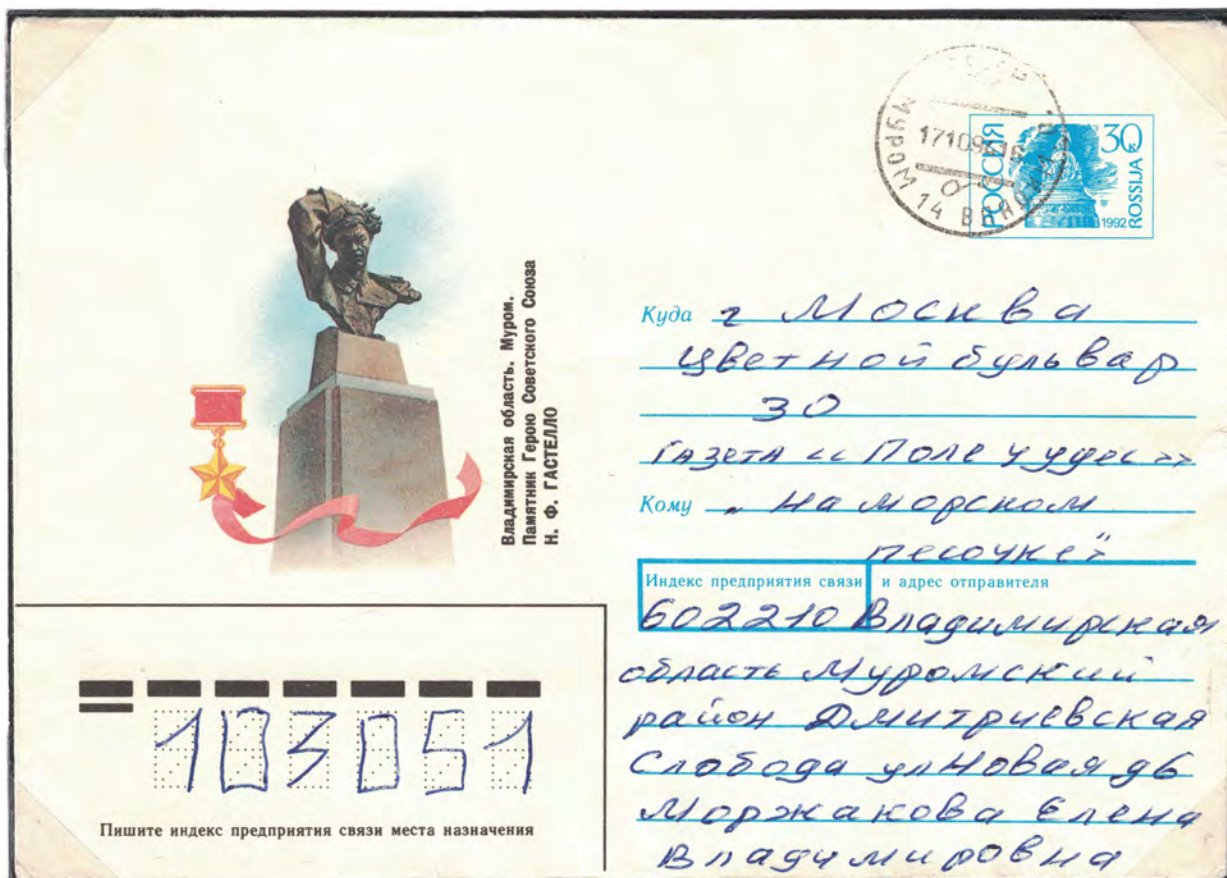 Владимирская область. Муром.
Памятник Герою Советского Союза
Н. Ф. ГАСТЕЛЛО
МУРОМ 14
РОССИЯ
30 к
1992
ROSSIJA
Куда г Москва
Цветной бульвар
30
газета « Поле чудес »
Кому „ На морском
песочке"
Индекс предприятия связи и адрес отправителя
602210 Владимирская
область Муромский
район Дмитриевская
Слобода ул Новая д6
Моржакова Елена
Владимировна
103051
Пишите индекс предприятия связи места назначения